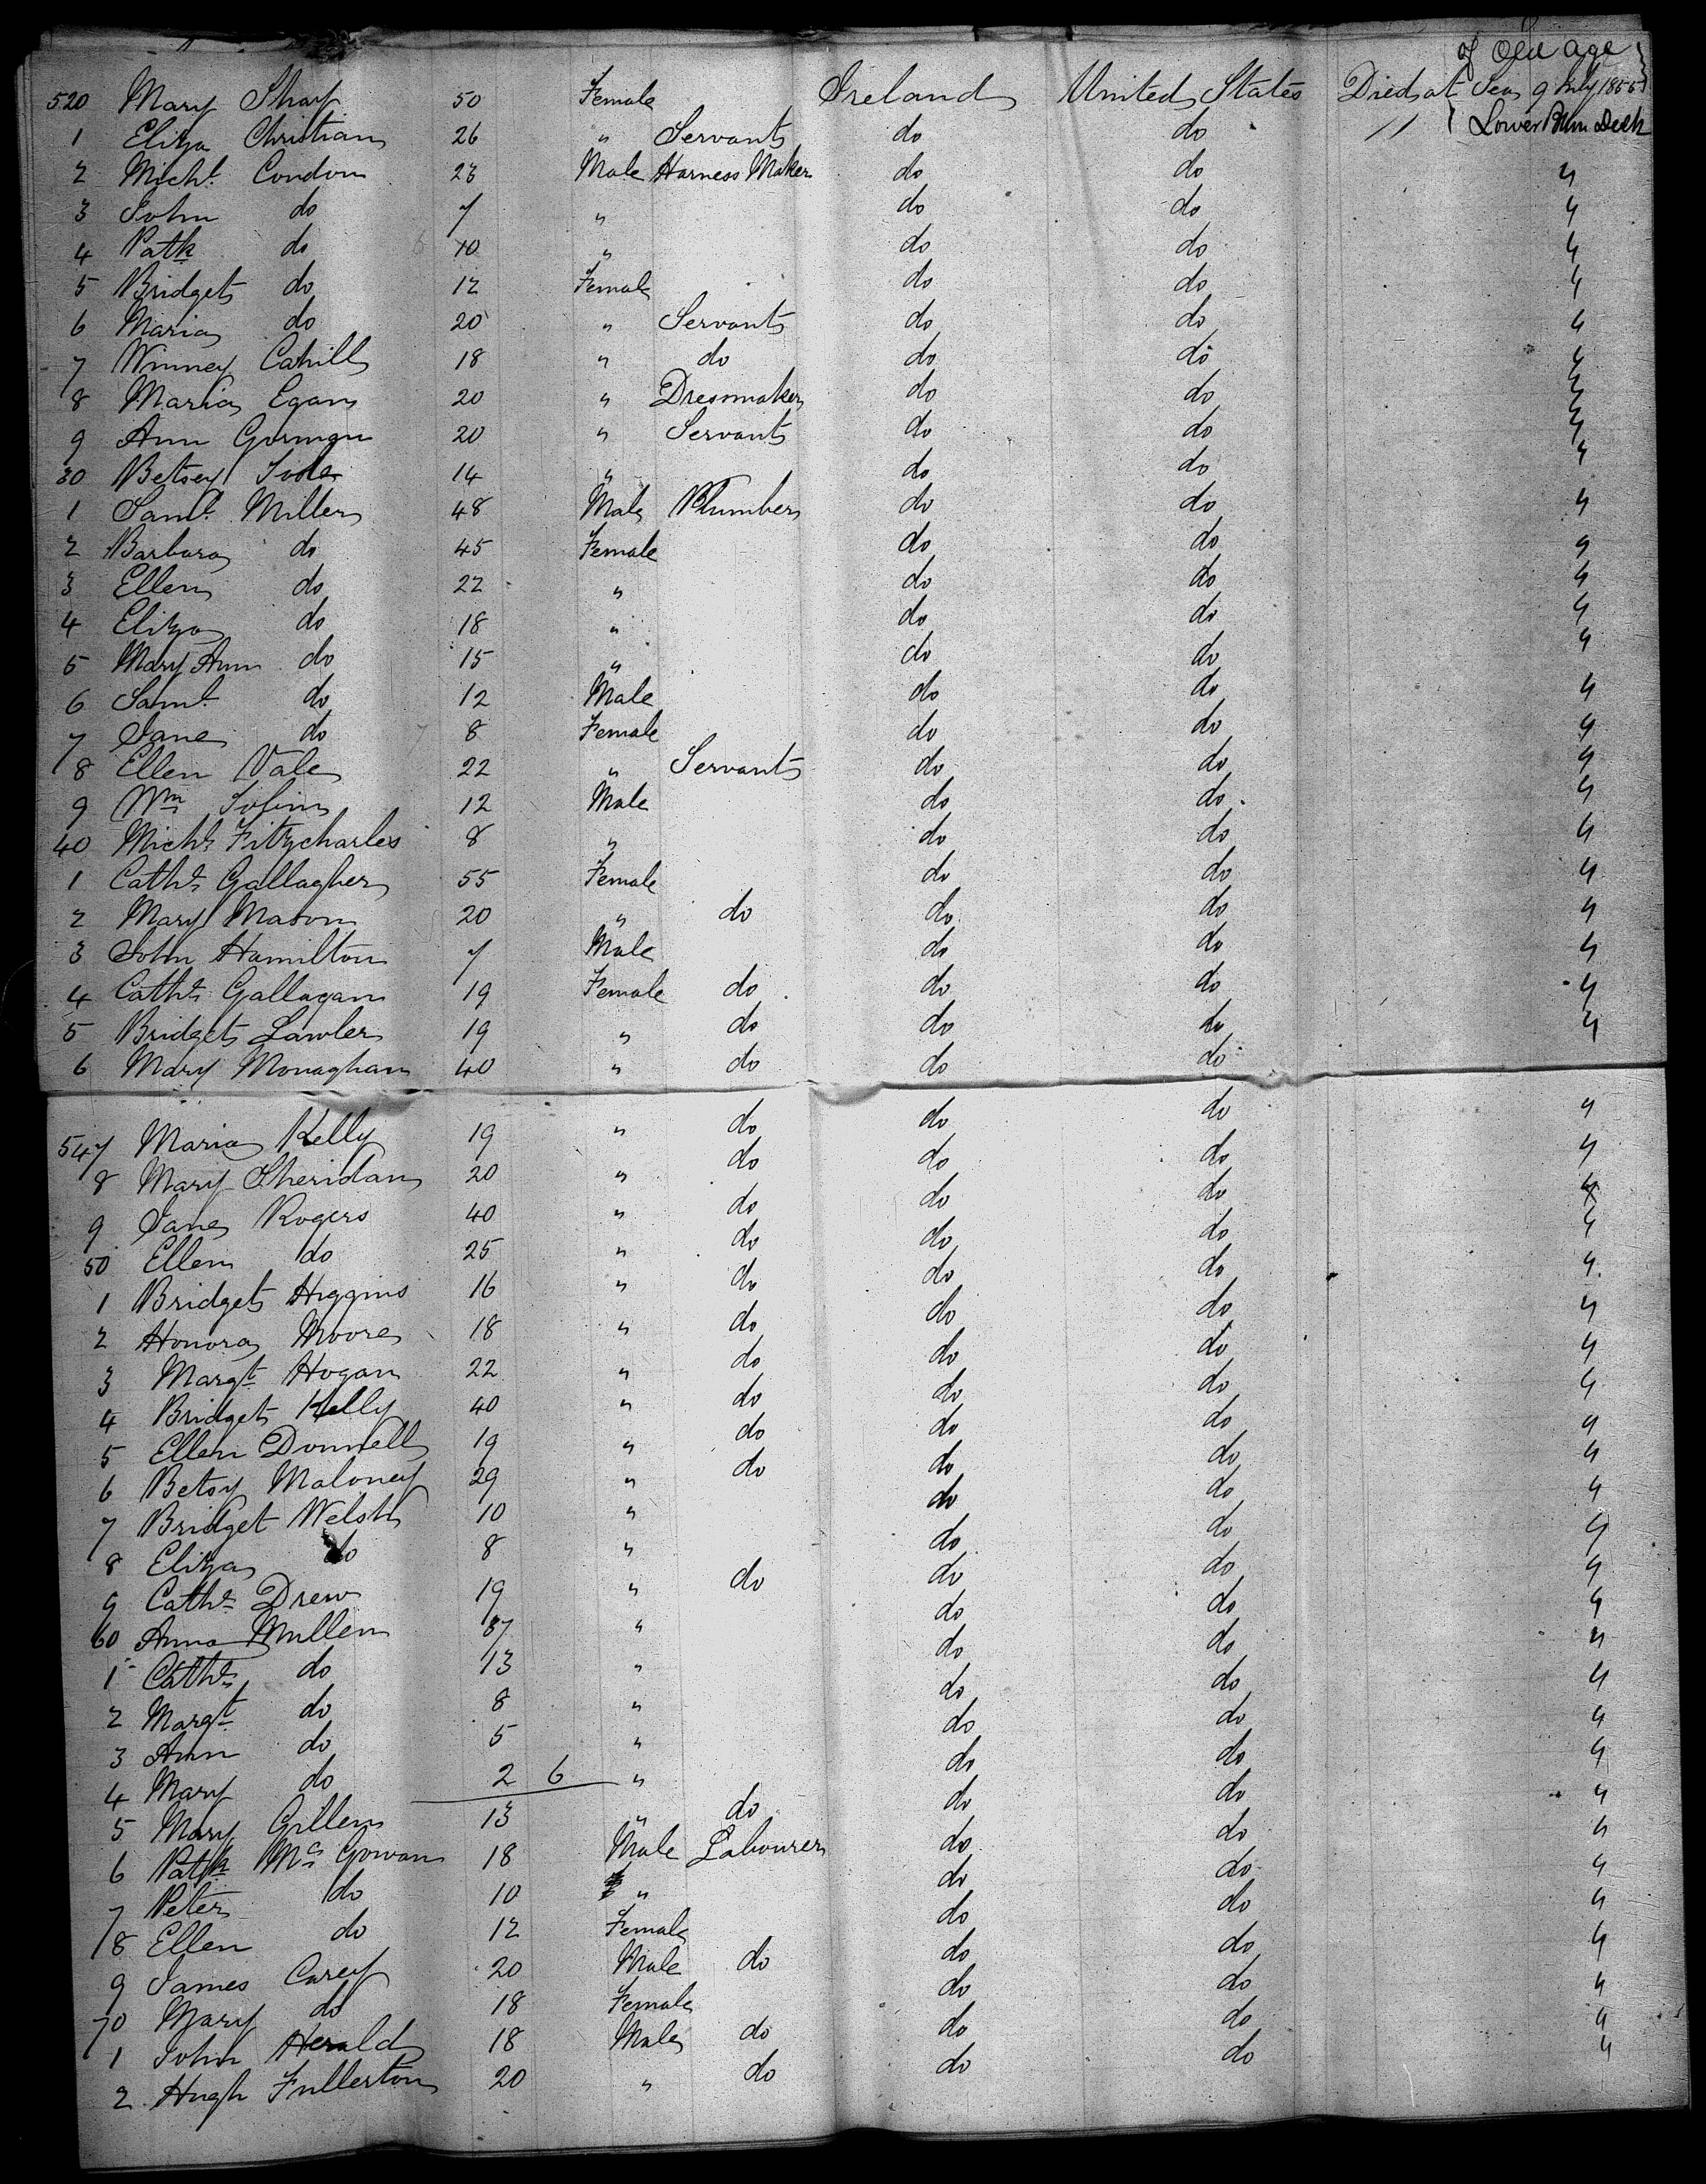 of Old age
520 Mary Sharp 50 Female Ireland United States Died at Sea 9 July 1855
1 Eliza Christian 26 " Servant do do " Lower Deck
2 Michl. Condon 23 Male Harness Maker do do "
3 John do 7 " do do "
4 Patk do 10 " do do "
5 Bridget do 12 Female do do "
6 Maria do 20 " Servant do do "
7 Winney Cahill 18 " do do do "
8 Maria Egan 20 " Dressmaker do do "
9 Ann Gorman 20 " Servant do do "
30 Betsey 14 " do do "
1 Saml. Miller 48 Male Plumber do do "
2 Barbara do 45 Female do do "
3 Ellen do 22 " do do "
4 Eliza do 18 " do do "
5 Mary Ann do 15 " do do "
6 Saml. do 12 Male do do "
7 Jane do 8 Female do do "
8 Ellen Vale 22 " Servant do do "
9 Wm 12 Male do do "
40 Michl Fitzcharles 8 " do do "
1 Cathe Gallagher 55 Female do do "
2 Mary Mason 20 " do do do "
3 John Hamilton 7 Male do do "
4 Cathe Gallagan 19 Female do do do "
5 Bridget Lawler 19 " do do do "
6 Mary Monaghan 40 " do do do
547 Maria Kelly 19 " do do do "
8 Mary Sheridan 20 " do do do "
9 Jane Rogers 40 " do do do "
50 Ellen do 25 " do do do "
1 Bridget Higgins 16 " do do do "
2 Honora Moore 18 " do do do "
3 Margt Hogan 22 " do do do "
4 Bridget Kelly 40 " do do do "
5 Ellen Donnell 19 " do do do "
6 Betsy Maloney 29 " do do do "
7 Bridget Welsh 10 " do do "
8 Eliza do 8 " do do "
9 Cathe Drew 19 " do do do "
60 Anna Mullen 37 " do do "
1 Cathe do 13 " do do "
2 Margt do 8 " do do "
3 Ann do 5 " do do "
4 Mary do 2 6 " do do "
5 Mary Gillen 13 " do do do "
6 Patk McGowan 18 Male Labourer do do "
7 Peter do 10 " do do "
8 Ellen do 12 Female do do "
9 James Carey 20 Male do do do "
70 Mary do 18 Female do do "
1 John Herald 18 Male do do do "
2 Hugh Fullerton 20 " do do do "